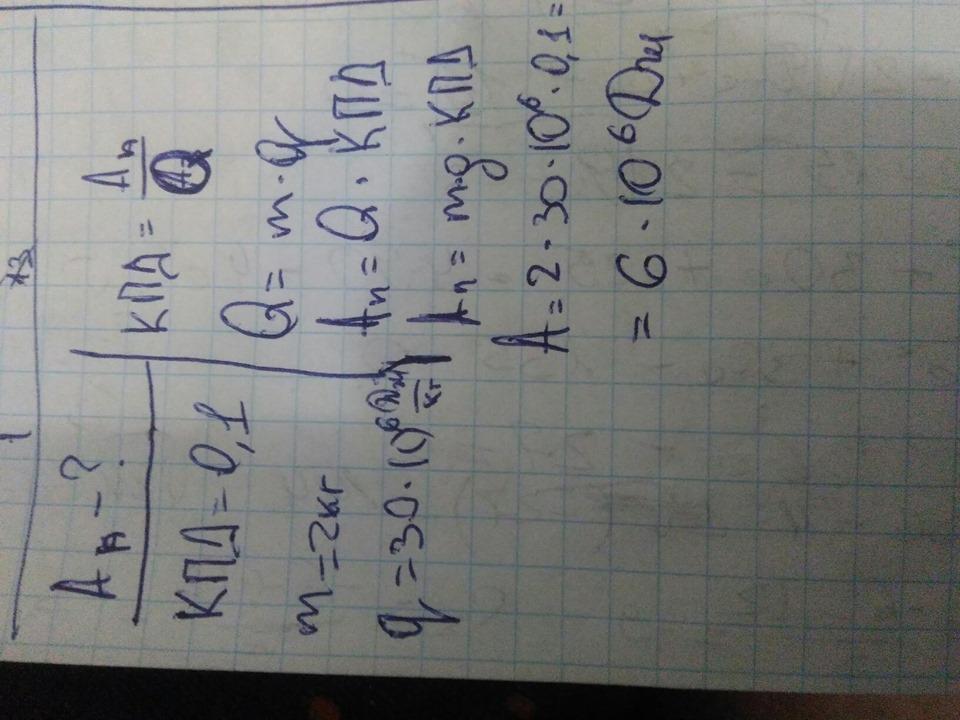 Aп – ?
КПД = 0,1
m = 2кг
q = 30 · 10⁶ Дж/кг
КПД = Aп/Q
Q = m · q
Aп = Q · КПД
Aп = mq · КПД
A = 2 · 30 · 10⁶ · 0,1 =
= 6 · 10⁶ Дж